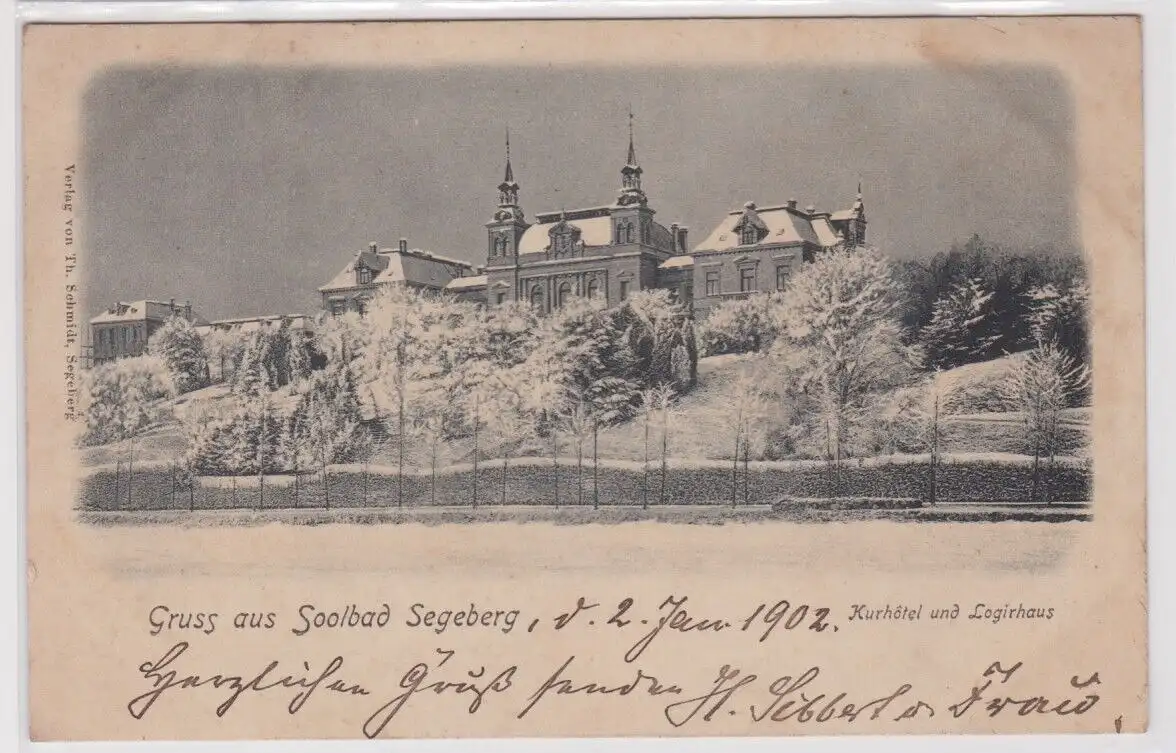 Verlag von Th. Schmidt, Segeberg
Gruss aus Soolbad Segeberg, d. 2. Jan. 1902. Kurhôtel und Logirhaus
Herzlichen Gruß senden H. Sibbert u. Frau